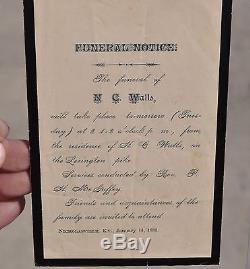 FUNERAL NOTICE.
The funeral of
N. C. Watts,
will take place to-morrow (Tues-
day) at 2 1-2 o'clock p. m., from
the residence of H. C. Watts, on
the Lexington pike
Services conducted by Rev. P.
H. McGuffey.
Friends and acquaintances of the
family are invited to attend.
NICHOLASVILLE, KY., January 14,